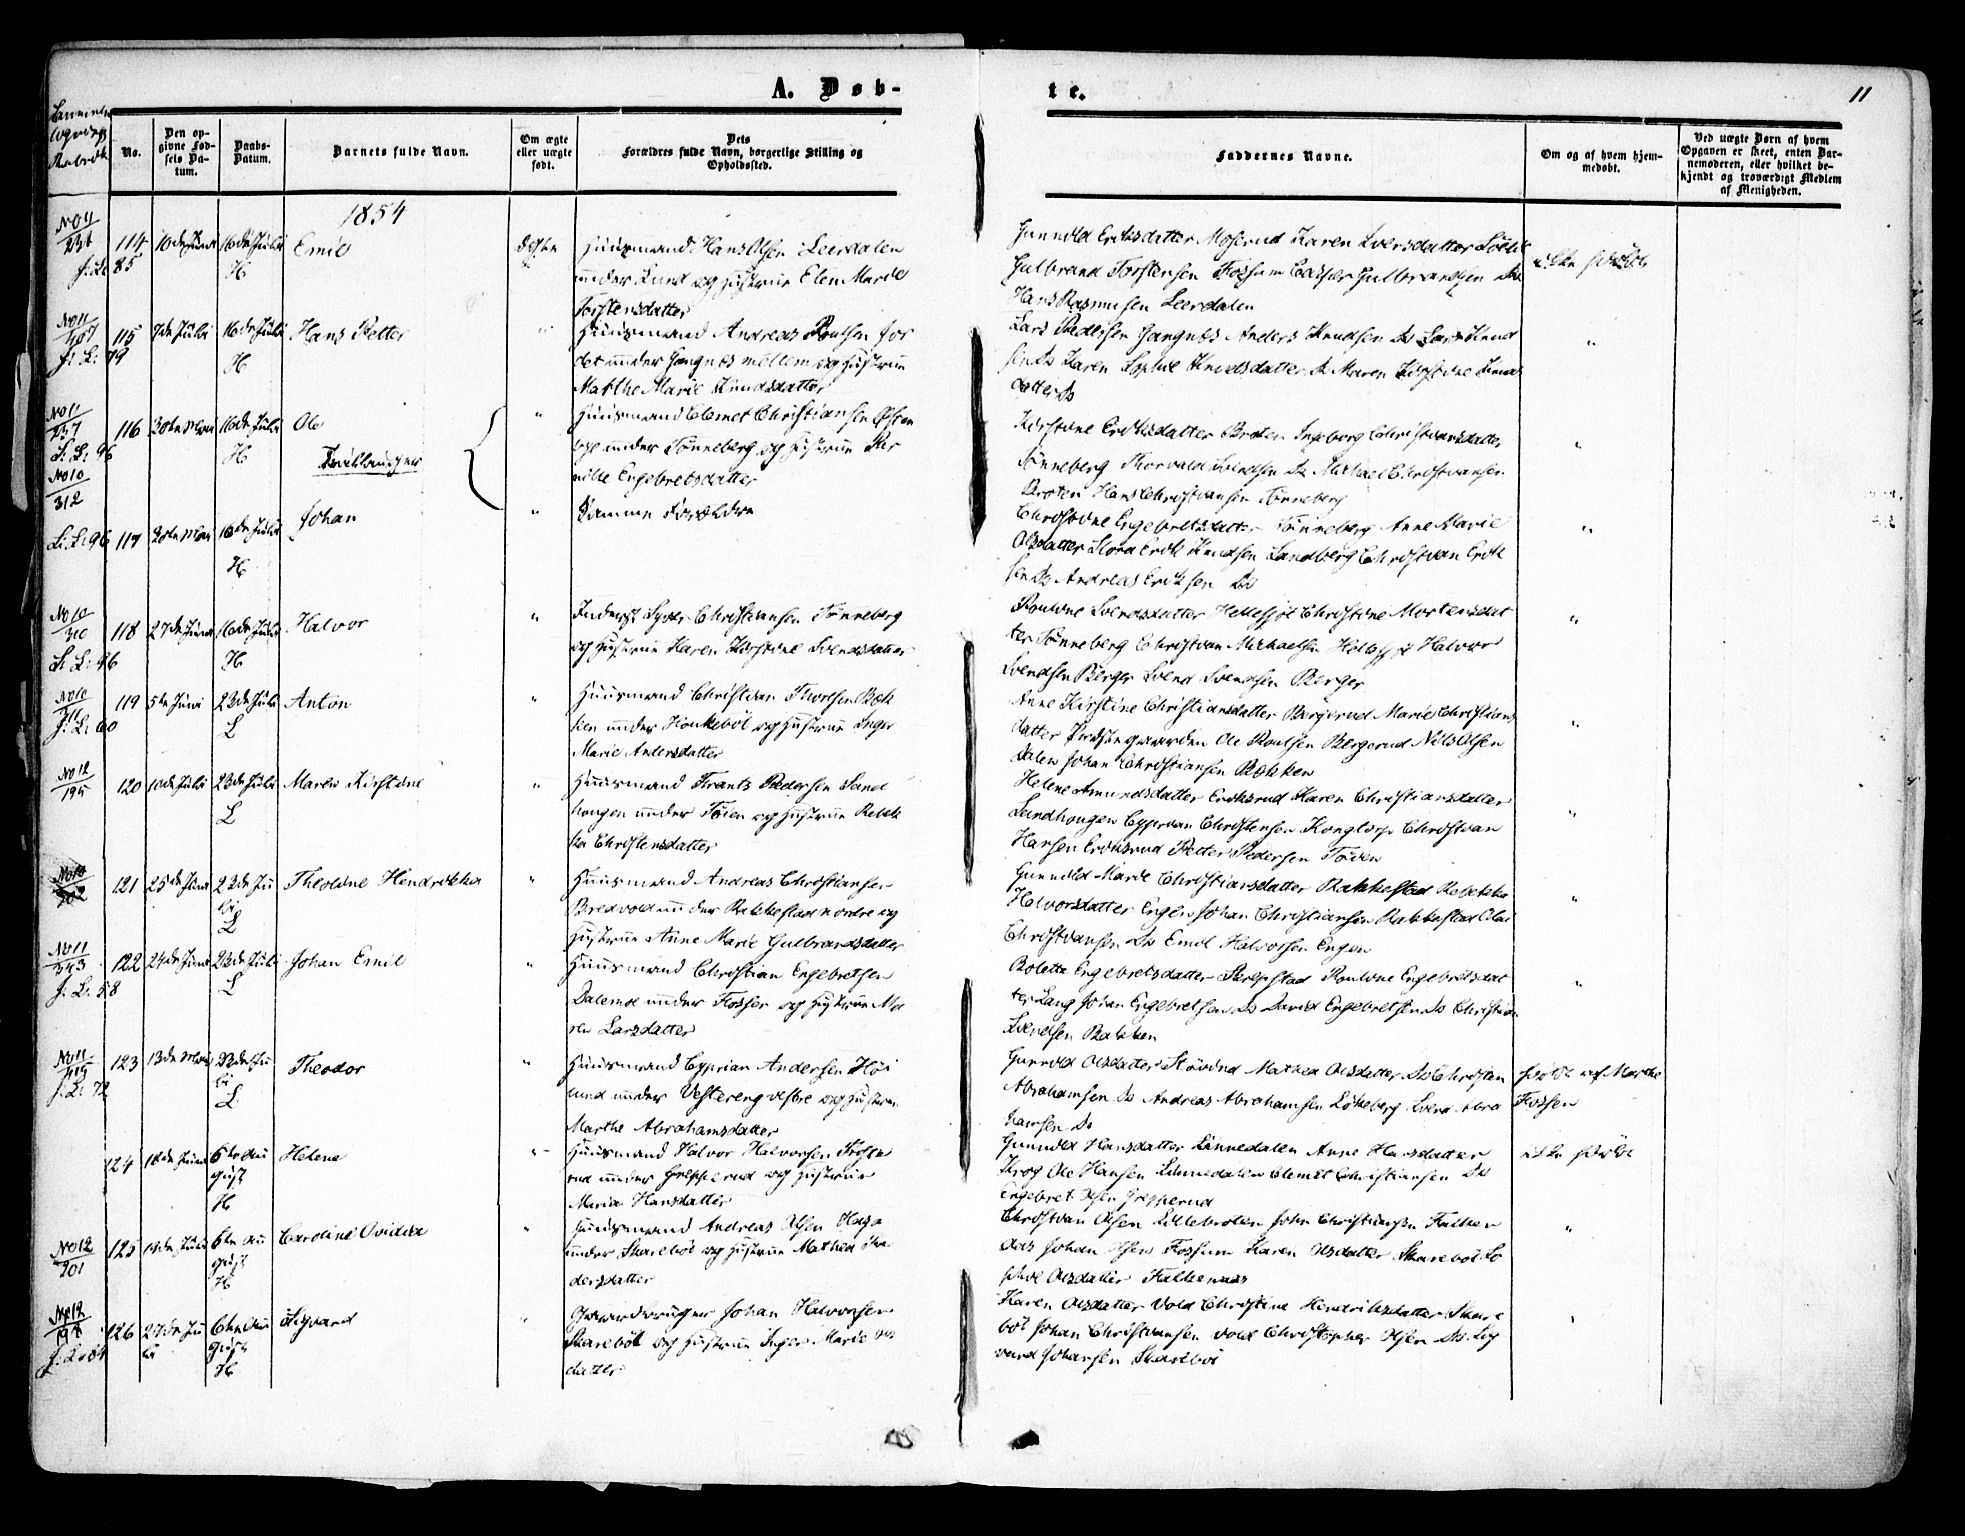 A. Døb-
te.
11
No.
Den op-
givne Fød-
sels Da-
tum.
Daabs-
Datum.
Barnets fulde Navn.
Om ægte
eller uægte
født.
Dets
Forældres fulde Navn, borgerlige Stilling og
Opholdssted.
Faddernes Navne.
Om og af hvem hjem-
medøbt.
Ved uægte Børn af hvem
Opgaven er skeet, enten Bar-
nemoderen, eller hvilket be-
kjendt og troværdigt Medlem
af Menigheden.
1854
No 11
231
114 16de Juli Emil ægte Huusmand Hans Olsen Leerdalen
H
under Lund og Hustrue Elen Marie
Torstensdatter
Gulbrand Torstensen Fossum
Hans Rasmusen Leerdalen
No 11
J: L: 79
115 7de Juli 16de Juli Hans Petter " Huusmand Andreas Poulsen
H
under Hangnæs mellem og Hustrue
Mathe Marie Knudsdatter
Lars Pedersen Hangnæs Anders Knudsen Ds Lars Knud
sen Ds Karen Sophie Knudsdatter Ds Maren Kirstine Knuds
datter Ds
"
No 11
237
L: L: 96
116 30te Mai 16de Juli Ole " Huusmand Clemet Christiansen
H
Tvillinger
under Tønneberg og Hustrue Per
nille Engebretsdatter
Kirstine Eriksdatter Broten Ingeborg Christiansdatter
Tønneberg Thorvald Svendsen Ds Michael Christiansen
Broten Hans Christiansen Tønneberg
"
No 10
312
L: L: 96 117 30te Mai 16de Juli Johan " Samme Forældre
H
Christine Engebretsdatter Tønneberg Anne Marie
Olsdatter Erik Knudsen Sandberg Christian Erik
sen Ds Andreas Eriksen Ds
"
No 10
310
L: L: 96
118 27de Juni 16de Juli Halvor " Inderst Syver Christiansen Tønneberg
H
og Hustrue Karen Kirstine Svendsdatter
Pouline Svendsdatter Christine Mortensdat
ter Tønneberg Christian Michaelsen Halvor
Svendsen Berger Svend Svendsen Berger
"
No 10
J: L: 60
119 5te Juni 23de Juli Anton " Huusmand Christian Bak
L
ken under og Hustrue Inger
Marie Andersdatter
Anne Kirstine Christiansdatter Bergerud Marie Christians
datter Præstegaarden Ole Poulsen Bergerud Nils Olsen
Dalen Johan Christiansen Bakken
"
No 12
195
120 10de Juli 23de Juli Maren Kirstine " Huusmand Frants Pedersen Sand
L
hougen under Tøien og Hustrue Rebek
ka Christensdatter
Helene Amundsdatter Eriksrud Karen Christiansdatter
Sandhougen Cyprian Christensen Kongtorp Christian
Hansen Eriksrud Petter Pedersen Tøien
"
No 10
302
121 25de Juni 23de Ju
li
L
Theoline Hendrikka " Huusmand Andreas Christiansen
Bredvold under Rakkestad nordre og
Hustrue Anne Marie Gulbrandsdatter
Gunnild Marie Christiansdatter Rakkestad Rebekka
Halvorsdatter Engen Johan Christiansen Rakkestad
Christiansen Ds Emil Halvorsen Engen
"
No 11
343
J: L: 58
122 24de Juni 23de Juli Johan Emil " Huusmand Christian Engebretsen
L
Dalemoe under Fosser og Hustrue Ma
ren Larsdatter
Bolette Engebretsdatter Pouline Engebretsdat
ter Lang Johan Engebretsen Ds David Engebretsen Ds Christian
Svendsen Bakken
"
No 11
J: L: 72
123 13de Mai 23de Ju
li
L
Theodor " Huusmand Cyprian Andersen Høi
lund under Vestereng vestre og Hustrue
Marthe Abrahamsdatter
Gunnild Olsdatter Mathea Olsdatter Ds Christen
Abrahamsen Ds Andreas Abrahamsen Løkeberg Svend Abra
hamsen Ds
af Marthe
Fossen
124 18de Juni 6te Au
gust
H
Helene " Huusmand Halvor Halvorsen
under Grepperud og Hustrue
Maria Hansdatter
Gunnild Hansdatter Linnedalen Anne Hansdatter
Krog Ole Hansen Linnedalen Clemet Christiansen Ds
Engebret Olsen Grepperud
No 12
201
125 19de Juli 6te Au
gust
H
Caroline Ovidia " Huusmand Andreas Olsen Haga
under Skarebøl og Hustrue Mathea An
dersdatter
Christian Olsen Lillebroten John Christiansen Falken
Johan Olsen Fossum Karen Olsdatter Skarebøl So
phie Olsdatter Falkenaas
"
No 12
126 27de Ju
li
6te Au
gust
H
Sigvard " Gaardbruger Johan Halvorsen
Skarebøl og Hustrue Inger Marie Ols
datter
Karen Olsdatter Vold Christine Hendriksdatter Skare
bøl Johan Christiansen Vold Christopher Olsen Ds Sig
vard Johansen Skarebøl